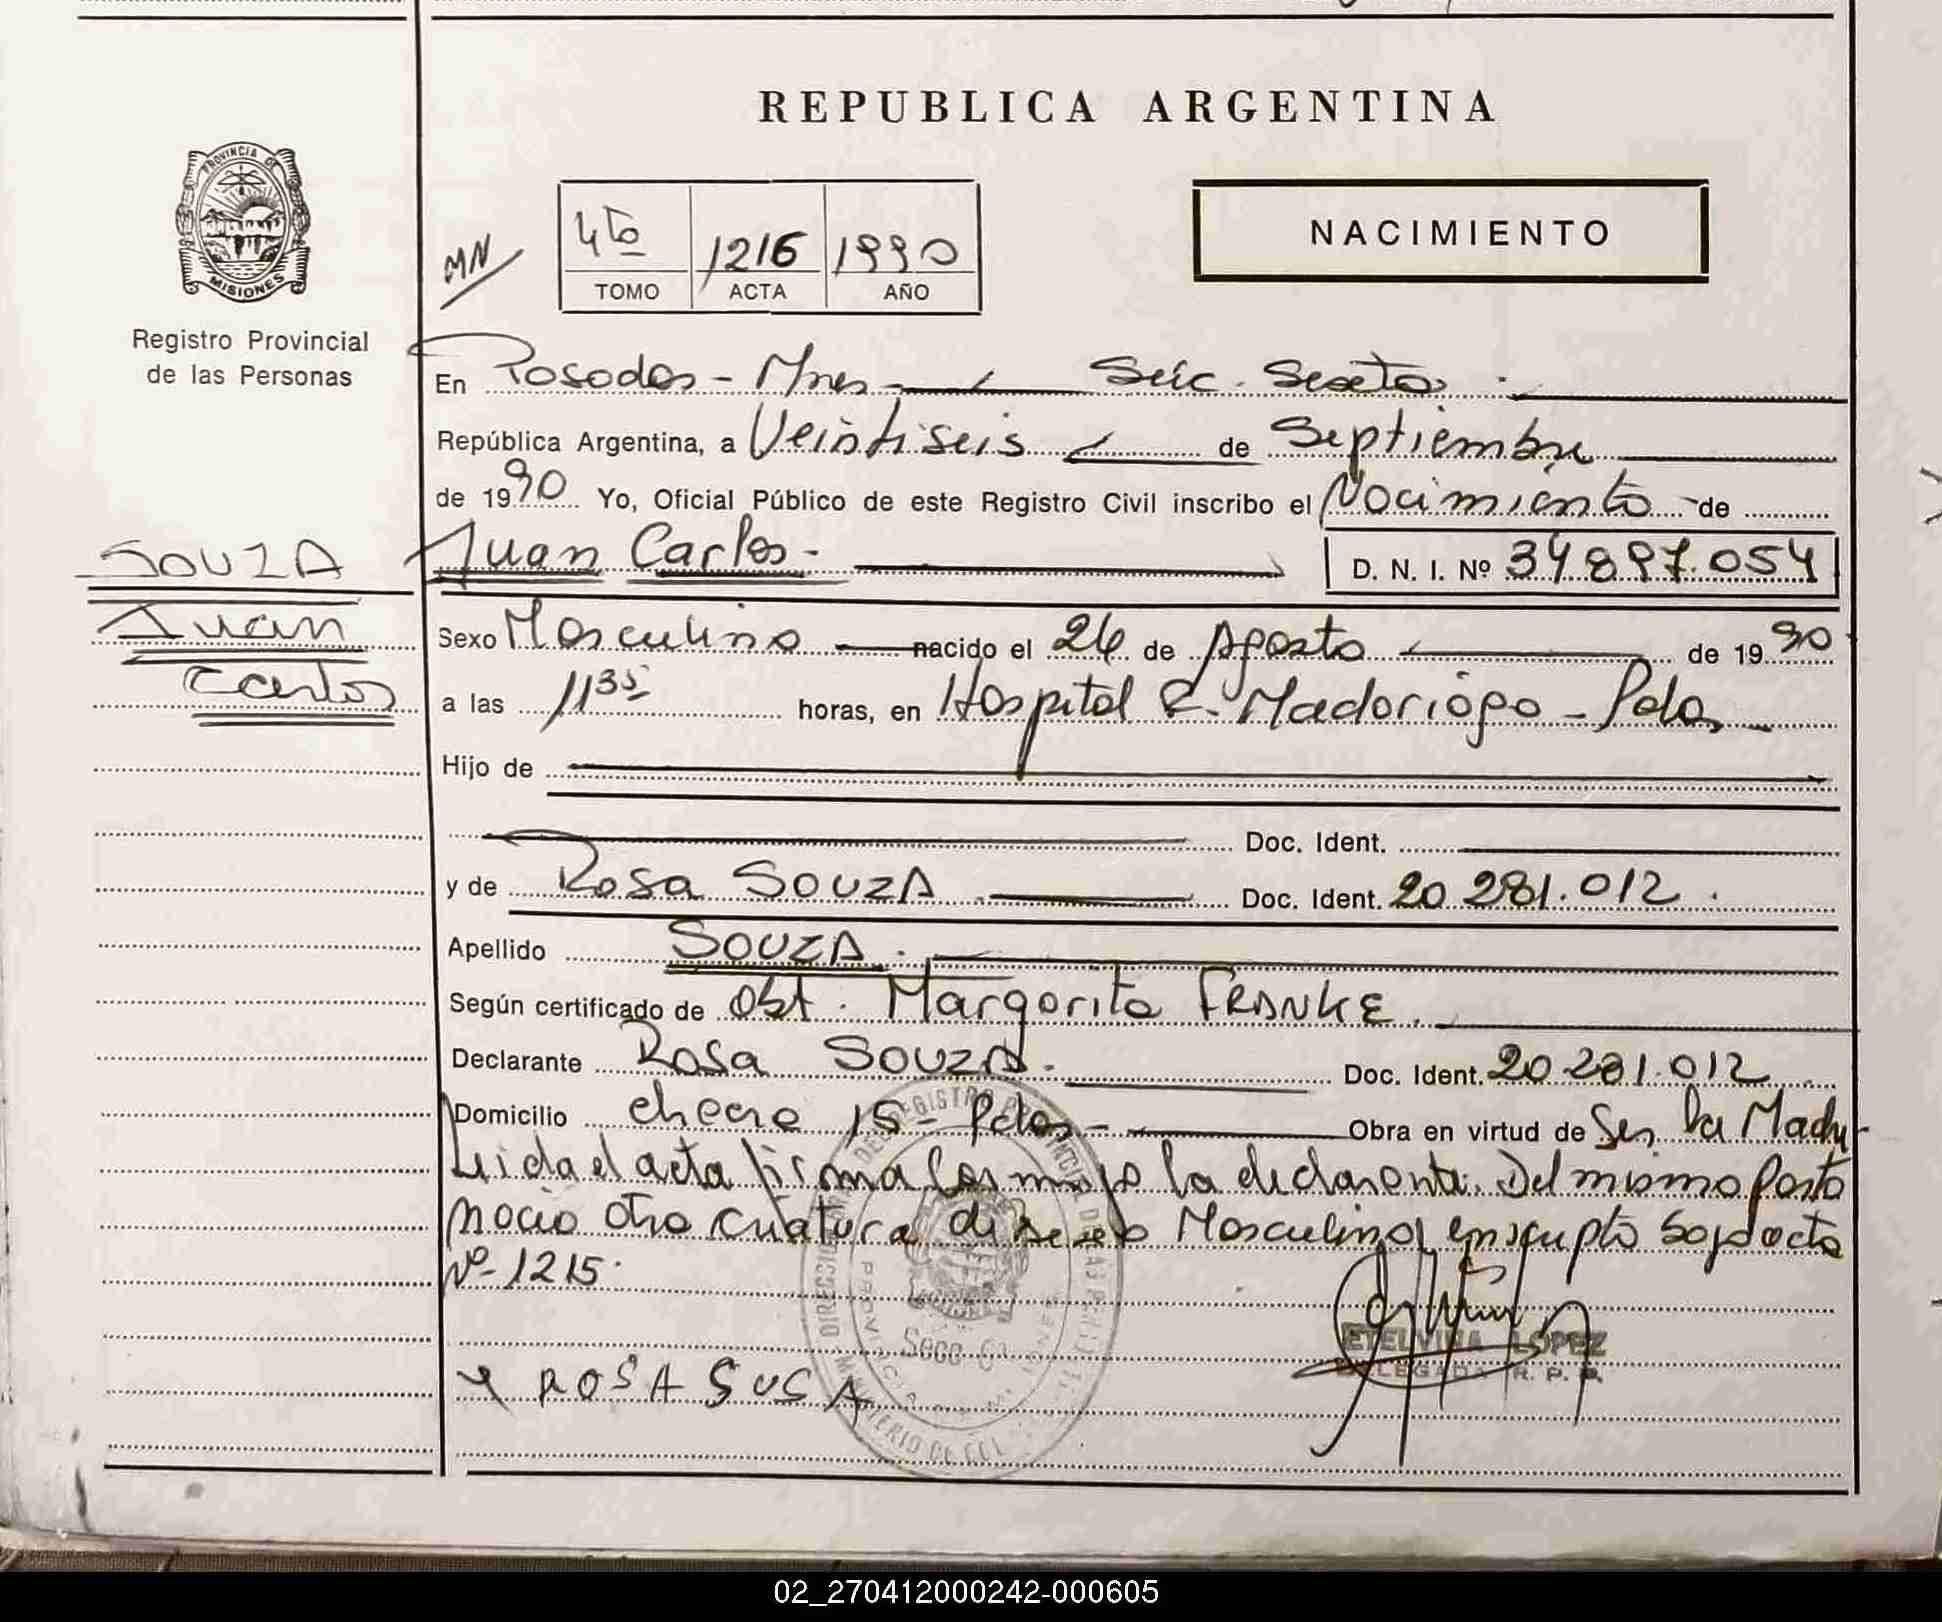 REPUBLICA ARGENTINA
PROVINCIA DE MISIONES
Registro Provincial
de las Personas
NACIMIENTO
MN
4to 1216 1990
TOMO ACTA AÑO
En Posadas - Mnes - Secc. Sexta.
República Argentina, a Veintiseis de Septiembre
de 1990 Yo, Oficial Público de este Registro Civil inscribo el Nacimiento de
SOUZA
Juan
Carlos
Juan Carlos - D. N. I. Nº 34897.054
Sexo Masculino nacido el 24 de Agosto de 1990
a las 11 35 horas, en Hospital R. Madariaga - Pdas
Hijo de
Doc. Ident.
y de Rosa SOUZA Doc. Ident. 20 281.012.
Apellido SOUZA.
Según certificado de Obst. Margarita FRANKE.
Declarante Rosa SOUZA. Doc. Ident. 20 281.012
Domicilio chacra 15 - Pdas - Obra en virtud de Ser la Madre
Leida el acta firma la declarante. Del mismo Parto
Nacio otra criatura de sexo Masculino, bajo acta
Nº 1215.
ROSA SUSA
ETELVINA LOPEZ
DELEGADA R. P. P.
02_270412000242-000605